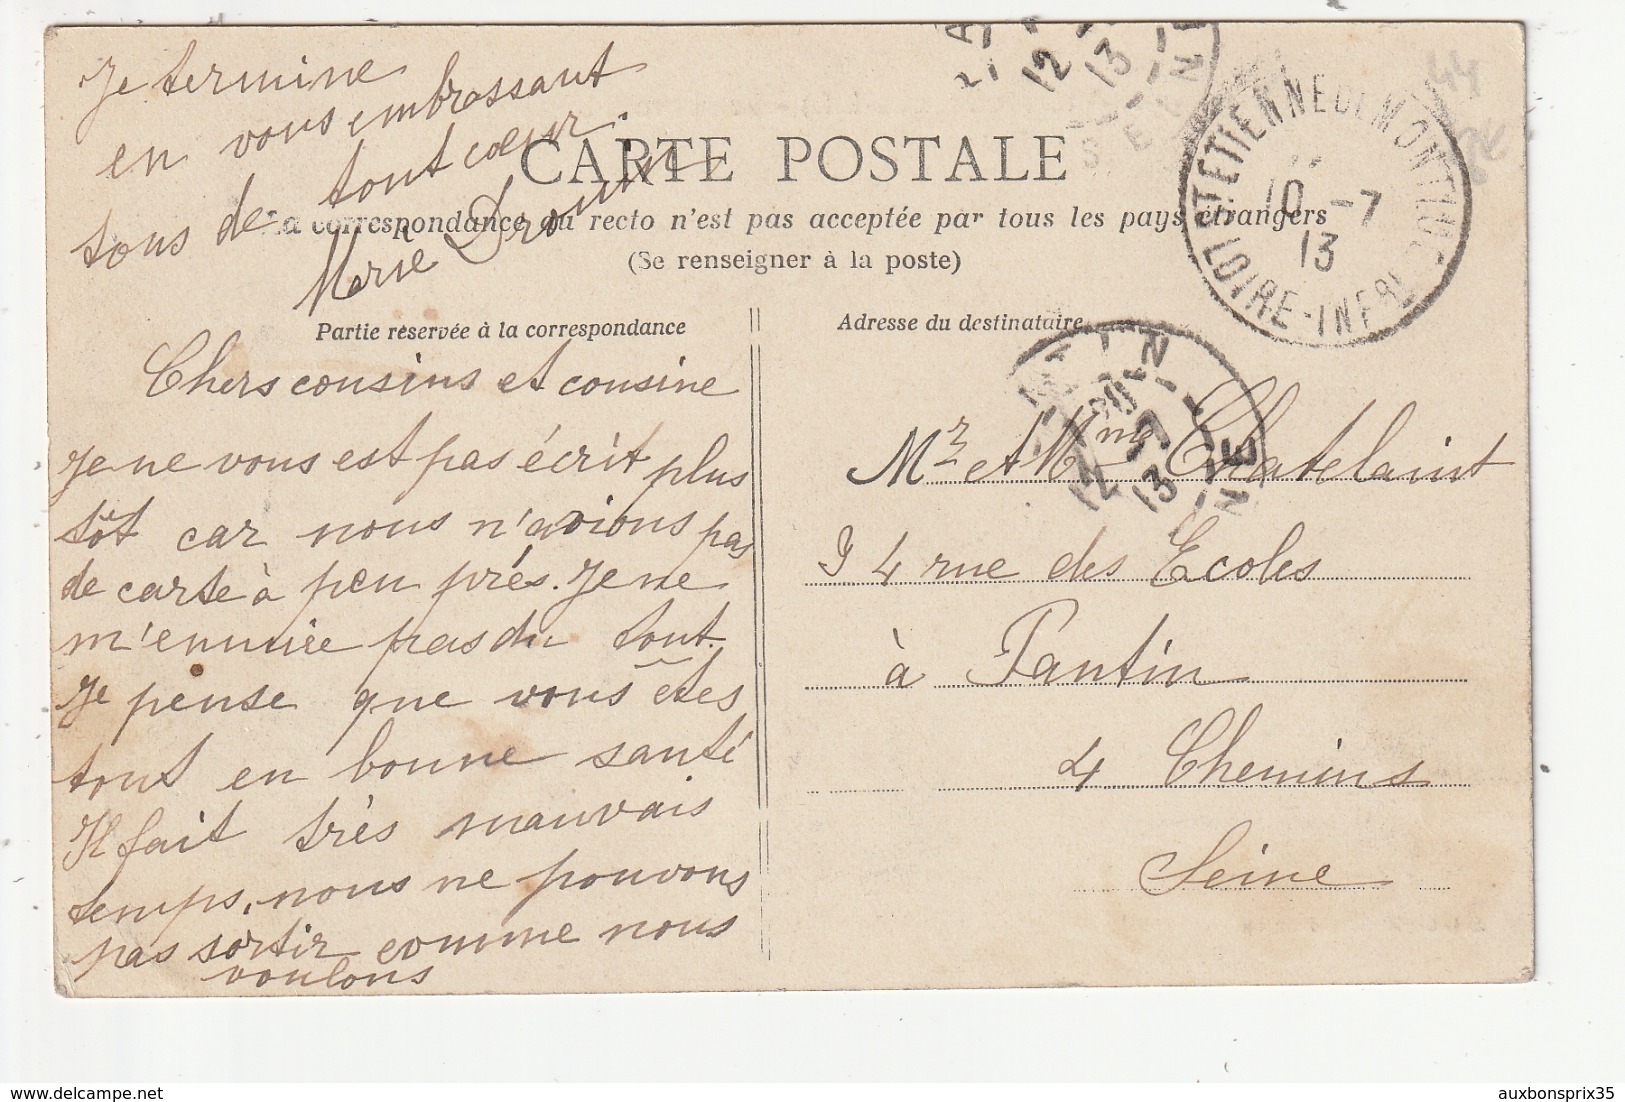 Je termine
en vous embrassant
tous de tout cœur.
Marie Drouin
CARTE POSTALE
La correspondance au recto n'est pas acceptée par tous les pays étrangers
(Se renseigner à la poste)
Partie réservée à la correspondance
Adresse du destinataire
Chers cousins et cousine
Je ne vous est pas écrit plus
tôt car nous n'avions pas
de carte à peu près. Je ne
m'ennuie pas du tout.
Je pense que vous êtes
tout en bonne santé
Il fait très mauvais
temps, nous ne pouvons
pas sortir comme nous
voulons
Mr et Mme Chatelaint
94 rue des Ecoles
à Pantin
4 Chemins
Seine
ST ETIENNE DE MONTLUC
10 -7
13
LOIRE-INFRE
PANTIN
12 -7
13
SEINE
12
13
SEINE
44
auxbonsprix35